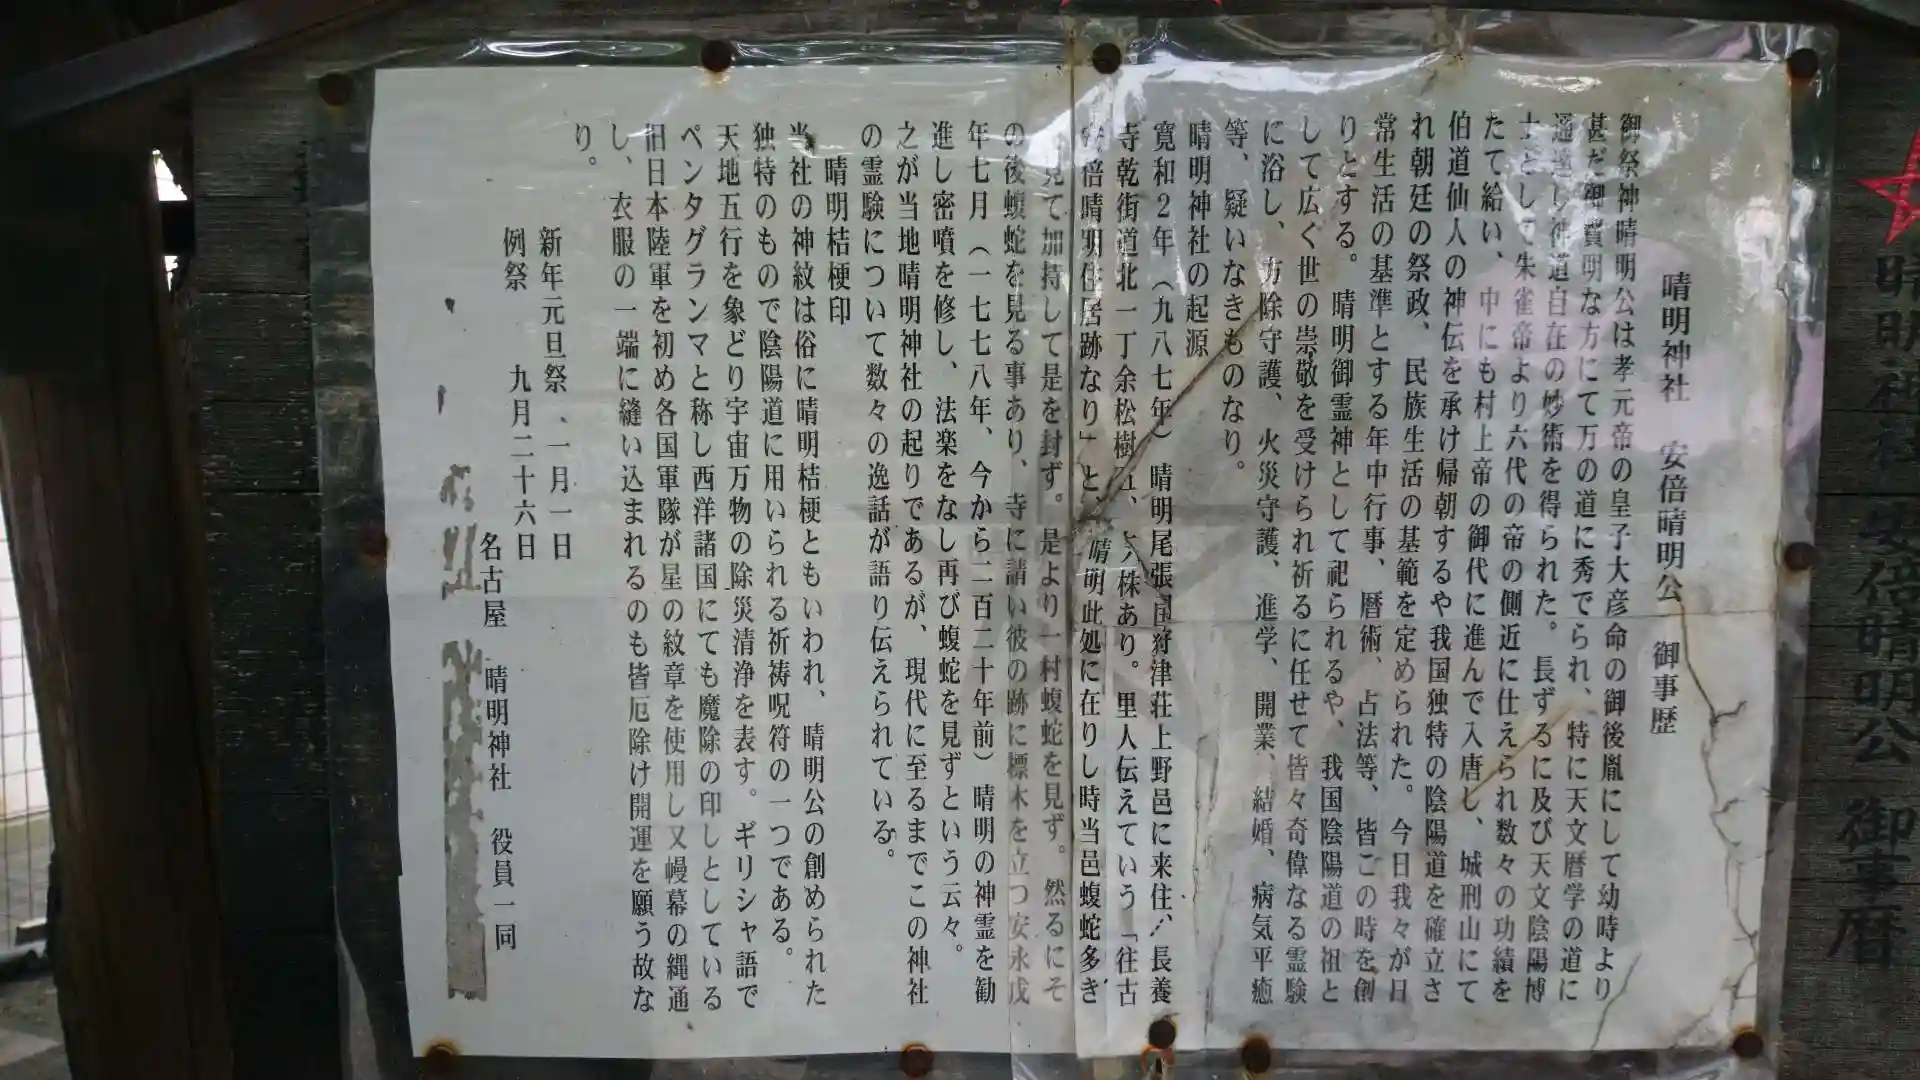 晴明神社　安倍晴明公　御事歴
御祭神晴明公は孝元帝の皇子大彦命の御後胤にして幼時より
甚だ御賢明な方にて万の道に秀でられ、特に天文暦学の道に
通達し神道自在の妙術を得られた。長ずるに及び天文陰陽博
士として朱雀帝より六代の帝の側近に仕えられ数々の功績を
たて給い、中にも村上帝の御代に進んで入唐し、城刑山にて
伯道仙人の神伝を承け帰朝するや我国独特の陰陽道を確立さ
れ朝廷の祭政、民族生活の基範を定められた。今日我々が日
常生活の基準とする年中行事、暦術、占法等、皆この時を創
りとする。晴明御霊神として祀られるや、我国陰陽道の祖と
して広く世の崇敬を受けられ祈るに任せて皆々奇偉なる霊験
に浴し、方除守護、火災守護、進学、開業、結婚、病気平癒
等、疑いなきものなり。
晴明神社の起源
寛和２年（九八七年）晴明尾張国狩津荘上野邑に来住、長養
寺乾街道北一丁余松樹五、六株あり。里人伝えていう「往古
安倍晴明住居跡なり」と、晴明此処に在りし時当邑蝮蛇多き
見て加持して是を封ず。是より一村蝮蛇を見ず。然るにそ
の後蝮蛇を見る事あり、寺に請い彼の跡に標木を立つ安永戊
年七月（一七七八年、今から二百二十年前）晴明の神霊を勧
進し密噴を修し、法楽をなし再び蝮蛇を見ずという云々。
之が当地晴明神社の起りであるが、現代に至るまでこの神社
の霊験について数々の逸話が語り伝えられている。
晴明桔梗印
当社の神紋は俗に晴明桔梗ともいわれ、晴明公の創められた
独特のもので陰陽道に用いられる祈祷呪符の一つである。
天地五行を象どり宇宙万物の除災清浄を表す。ギリシャ語で
ペンタグランマと称し西洋諸国にても魔除の印しとしている
旧日本陸軍を初め各国軍隊が星の紋章を使用し又幔幕の縄通
し、衣服の一端に縫い込まれるのも皆厄除け開運を願う故な
り。
新年元旦祭、一月一日
例祭　　九月二十六日
名古屋　晴明神社　役員一同
晴明神社　安倍晴明公　御事暦